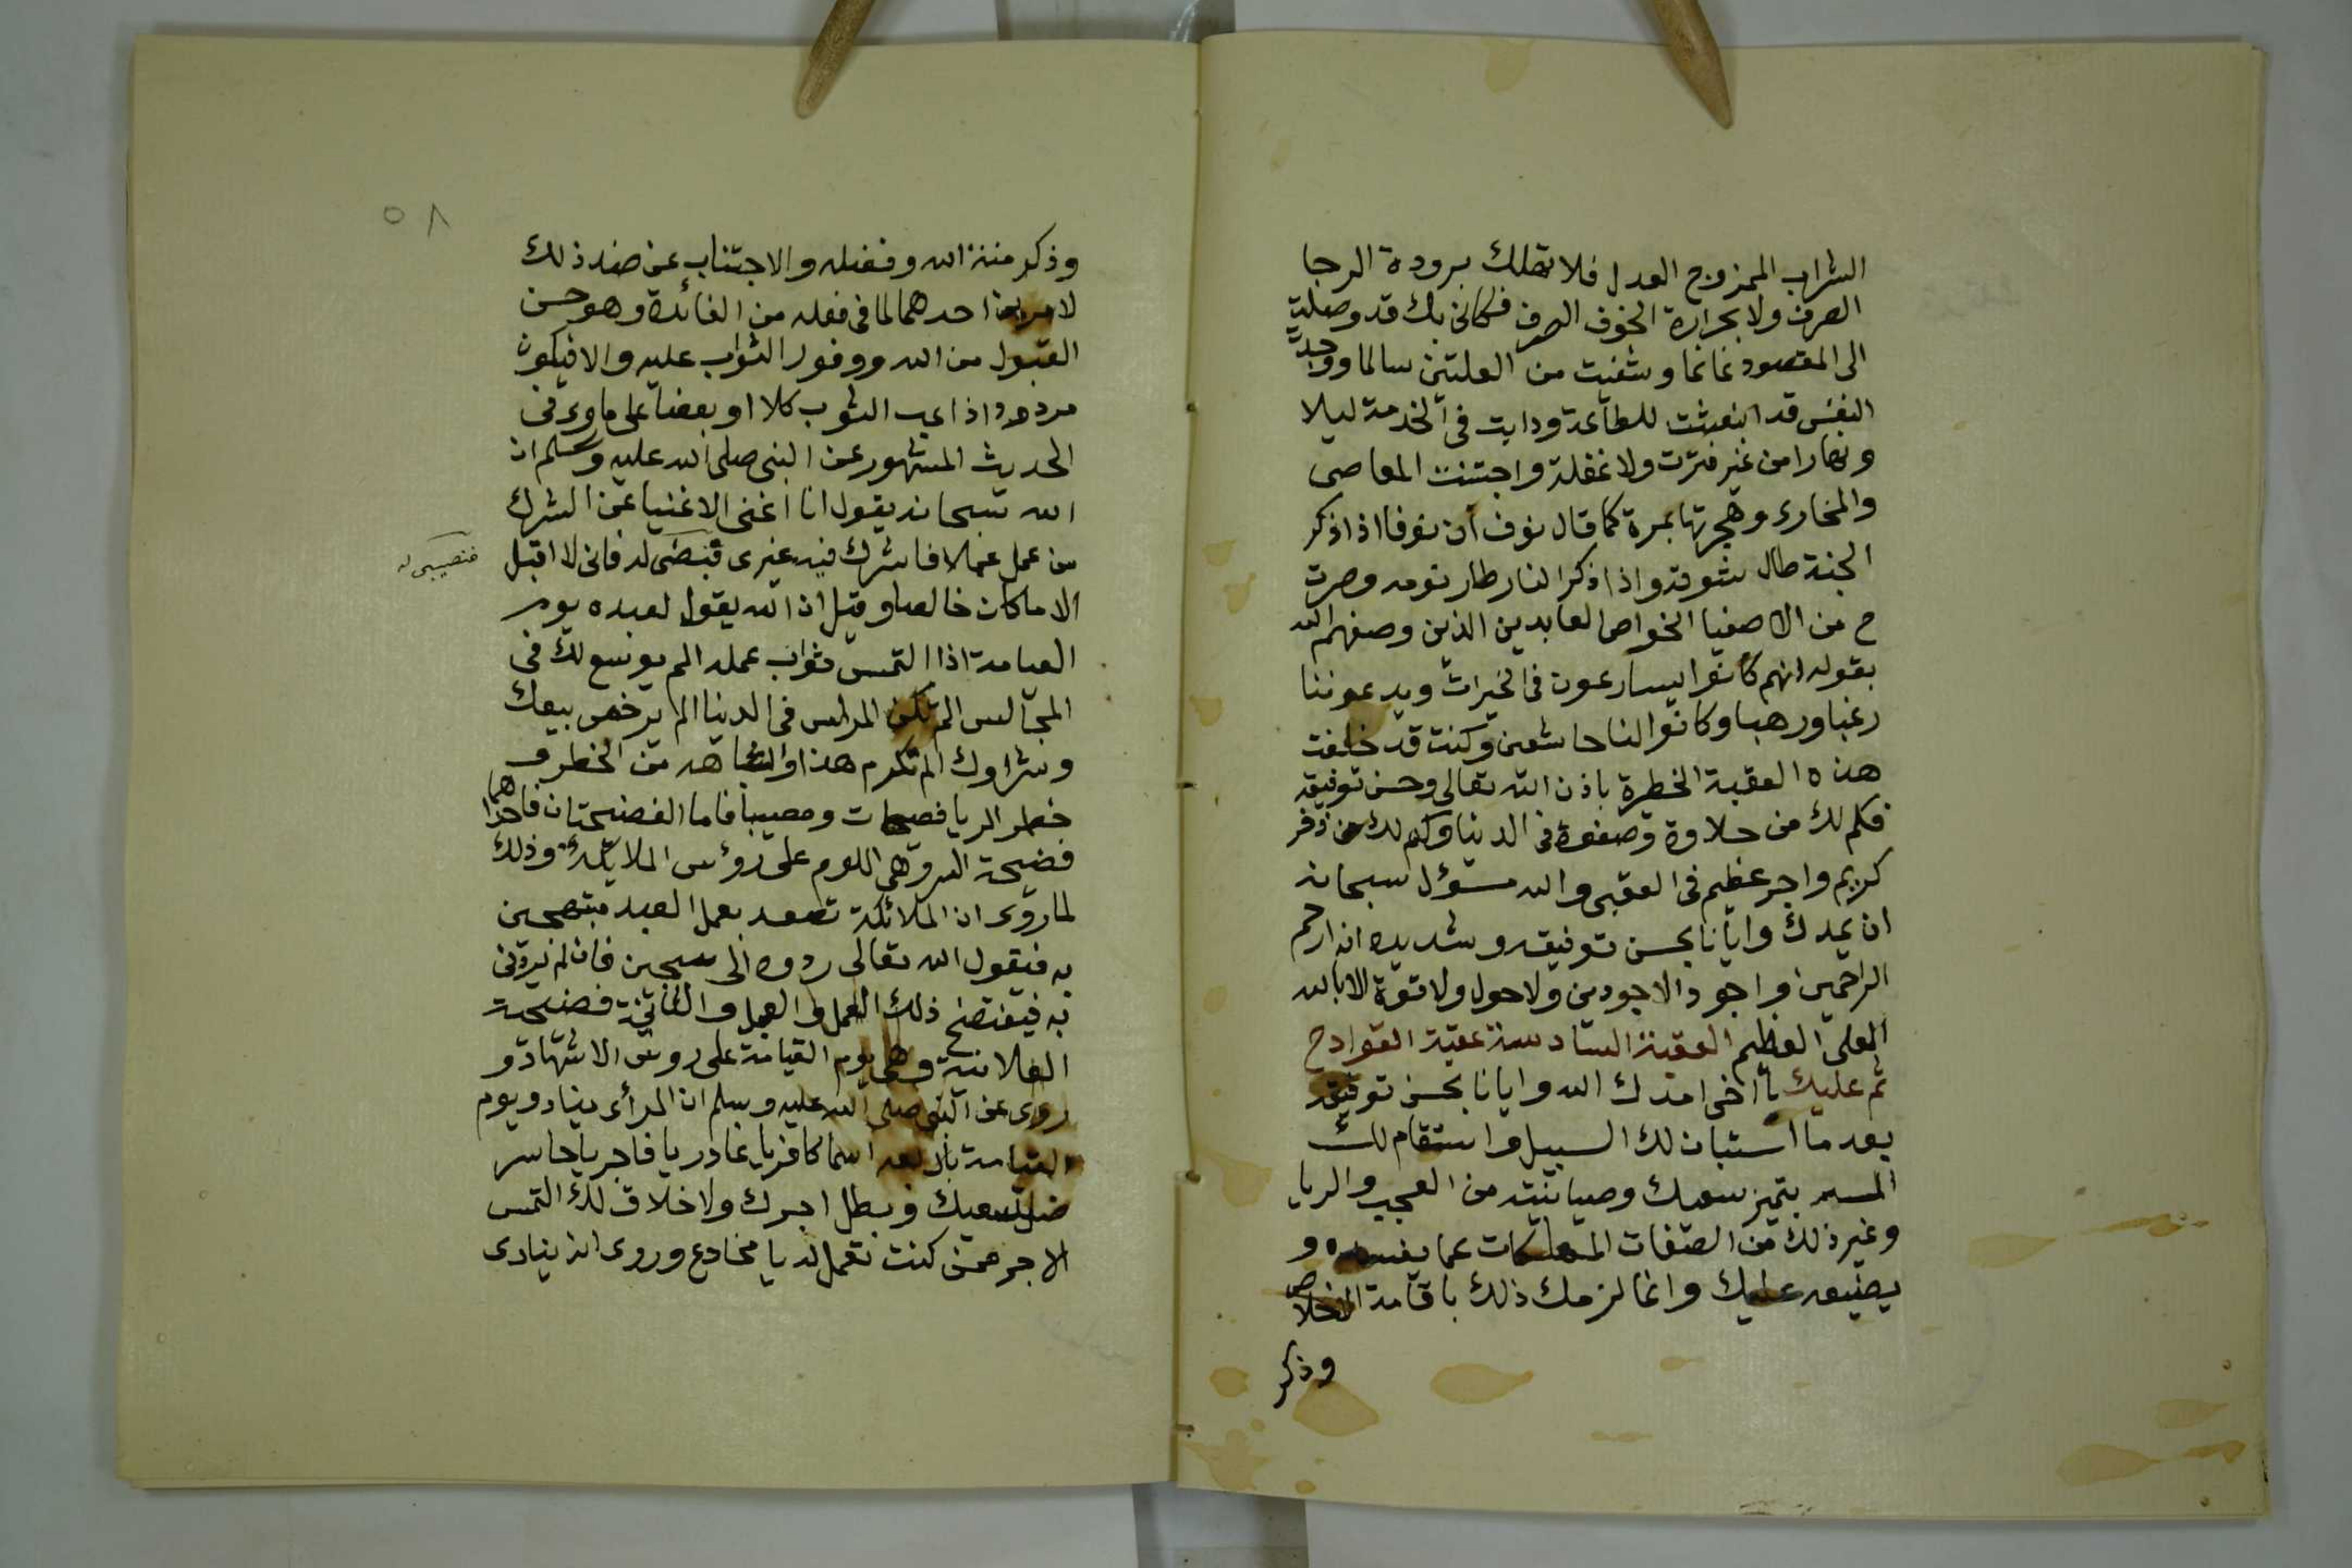 الشراب الممزوج العدل فلا تهلك ببرودة الرجا
الصرف ولا بحرارة الخوف الصرف فكانى بك قد وصلت
الى المقصود غانما وشفيت من العلتين سالما ووجدت
النفس قد انبعثت للطاعة ودابت فى الخدمة ليلا
ونهارا من غير فترت ولا غفلة واجتنبت المعاصى
والمخازى وهجرتها بمرة كما قال نوف ان نوفا اذا ذكر
الجنة طال شوقه واذا ذكر النار طار نومه وصرت
ح من الاصفيا الخواص العابدين الذين وصفهم الله
بقوله انهم كانوا يسارعون فى الخيرات ويدعوننا
رغبا ورهبا وكانوا لنا خاشعين وكنت قد خلفت
هذه العقبة الخطرة باذن الله تعالى وحسن توفيقه
فكم لك من حلاوة وصفوة فى الدنيا وكم لك من ذخر
كريم واجر عظيم فى العقبى والله مسؤل سبحانه
ان يمدك وايانا بحسن توفيقه وتسديده انه ارحم
الراحمين واجود الاجودين ولا حول ولا قوة الا بالله
العلى العظيم العقبة السادسة عقبة القوادح
ثم عليك يا اخى امدك الله وايانا بحسن توفيقه
بعد ما استبان لك السبيل واستقام لك
المسير بتميز سعيك وصيانته من العجب والريا
وغير ذلك من الصفات المهلكات عما يفسده و
يضيعه عليك وانما لزمك ذلك باقامة الاخلاص
وذكر
٥٨
وذكر منة الله وفضله والاجتناب عن ضد ذلك
لامرين احدهما لما فى فعله من الفائدة وهو حسن
القبول من الله ووفور الثواب عليه والا فيكون
مردودا ذاهب الثوب كلا او بعضا على ما روى فى
الحديث المشهور عن النبى صلى الله عليه وسلم ان
الله سبحانه يقول انا اغنى الاغنيا عن الشرك
من عمل عملا فاشرك فيه غيرى فنصى له فانى لا اقبل
فنصيبى له
الا ما كان خالصا وقيل ان الله يقول لعبده يوم
القيامة اذا التمس ثواب عمله الم يوسع لك فى
المجالس الم تكن المراس فى الدنيا الم يرخص بيعك
وشراوك الم تكرم هذا من الخطر و
خطر الريا فضيحات ومصيبتا فاما الفضيحتان فاحداهما
فضيحة السر وهى اللوم على رؤس الملائكة وذلك
لما روى ان الملائكة تصعد بعمل العبد مبتهجين
به فيقول الله تعالى ردوه الى سجين فانه لم يردنى
به فيفتضح ذلك العمل والعبد والثانية فضيحة
العلانية وهى يوم القيامة على روس الاشهاد و
روى عن النبى صلى الله عليه وسلم ان المرأى ينادو يوم
القيامة باربعة اسما كافر يا غادر يا فاجر يا خاسر
ضل سعيك وبطل اجرك ولا خلاق لك التمس
الاجر ممن كنت تعمل له يا مخادع وروى انه ينادى